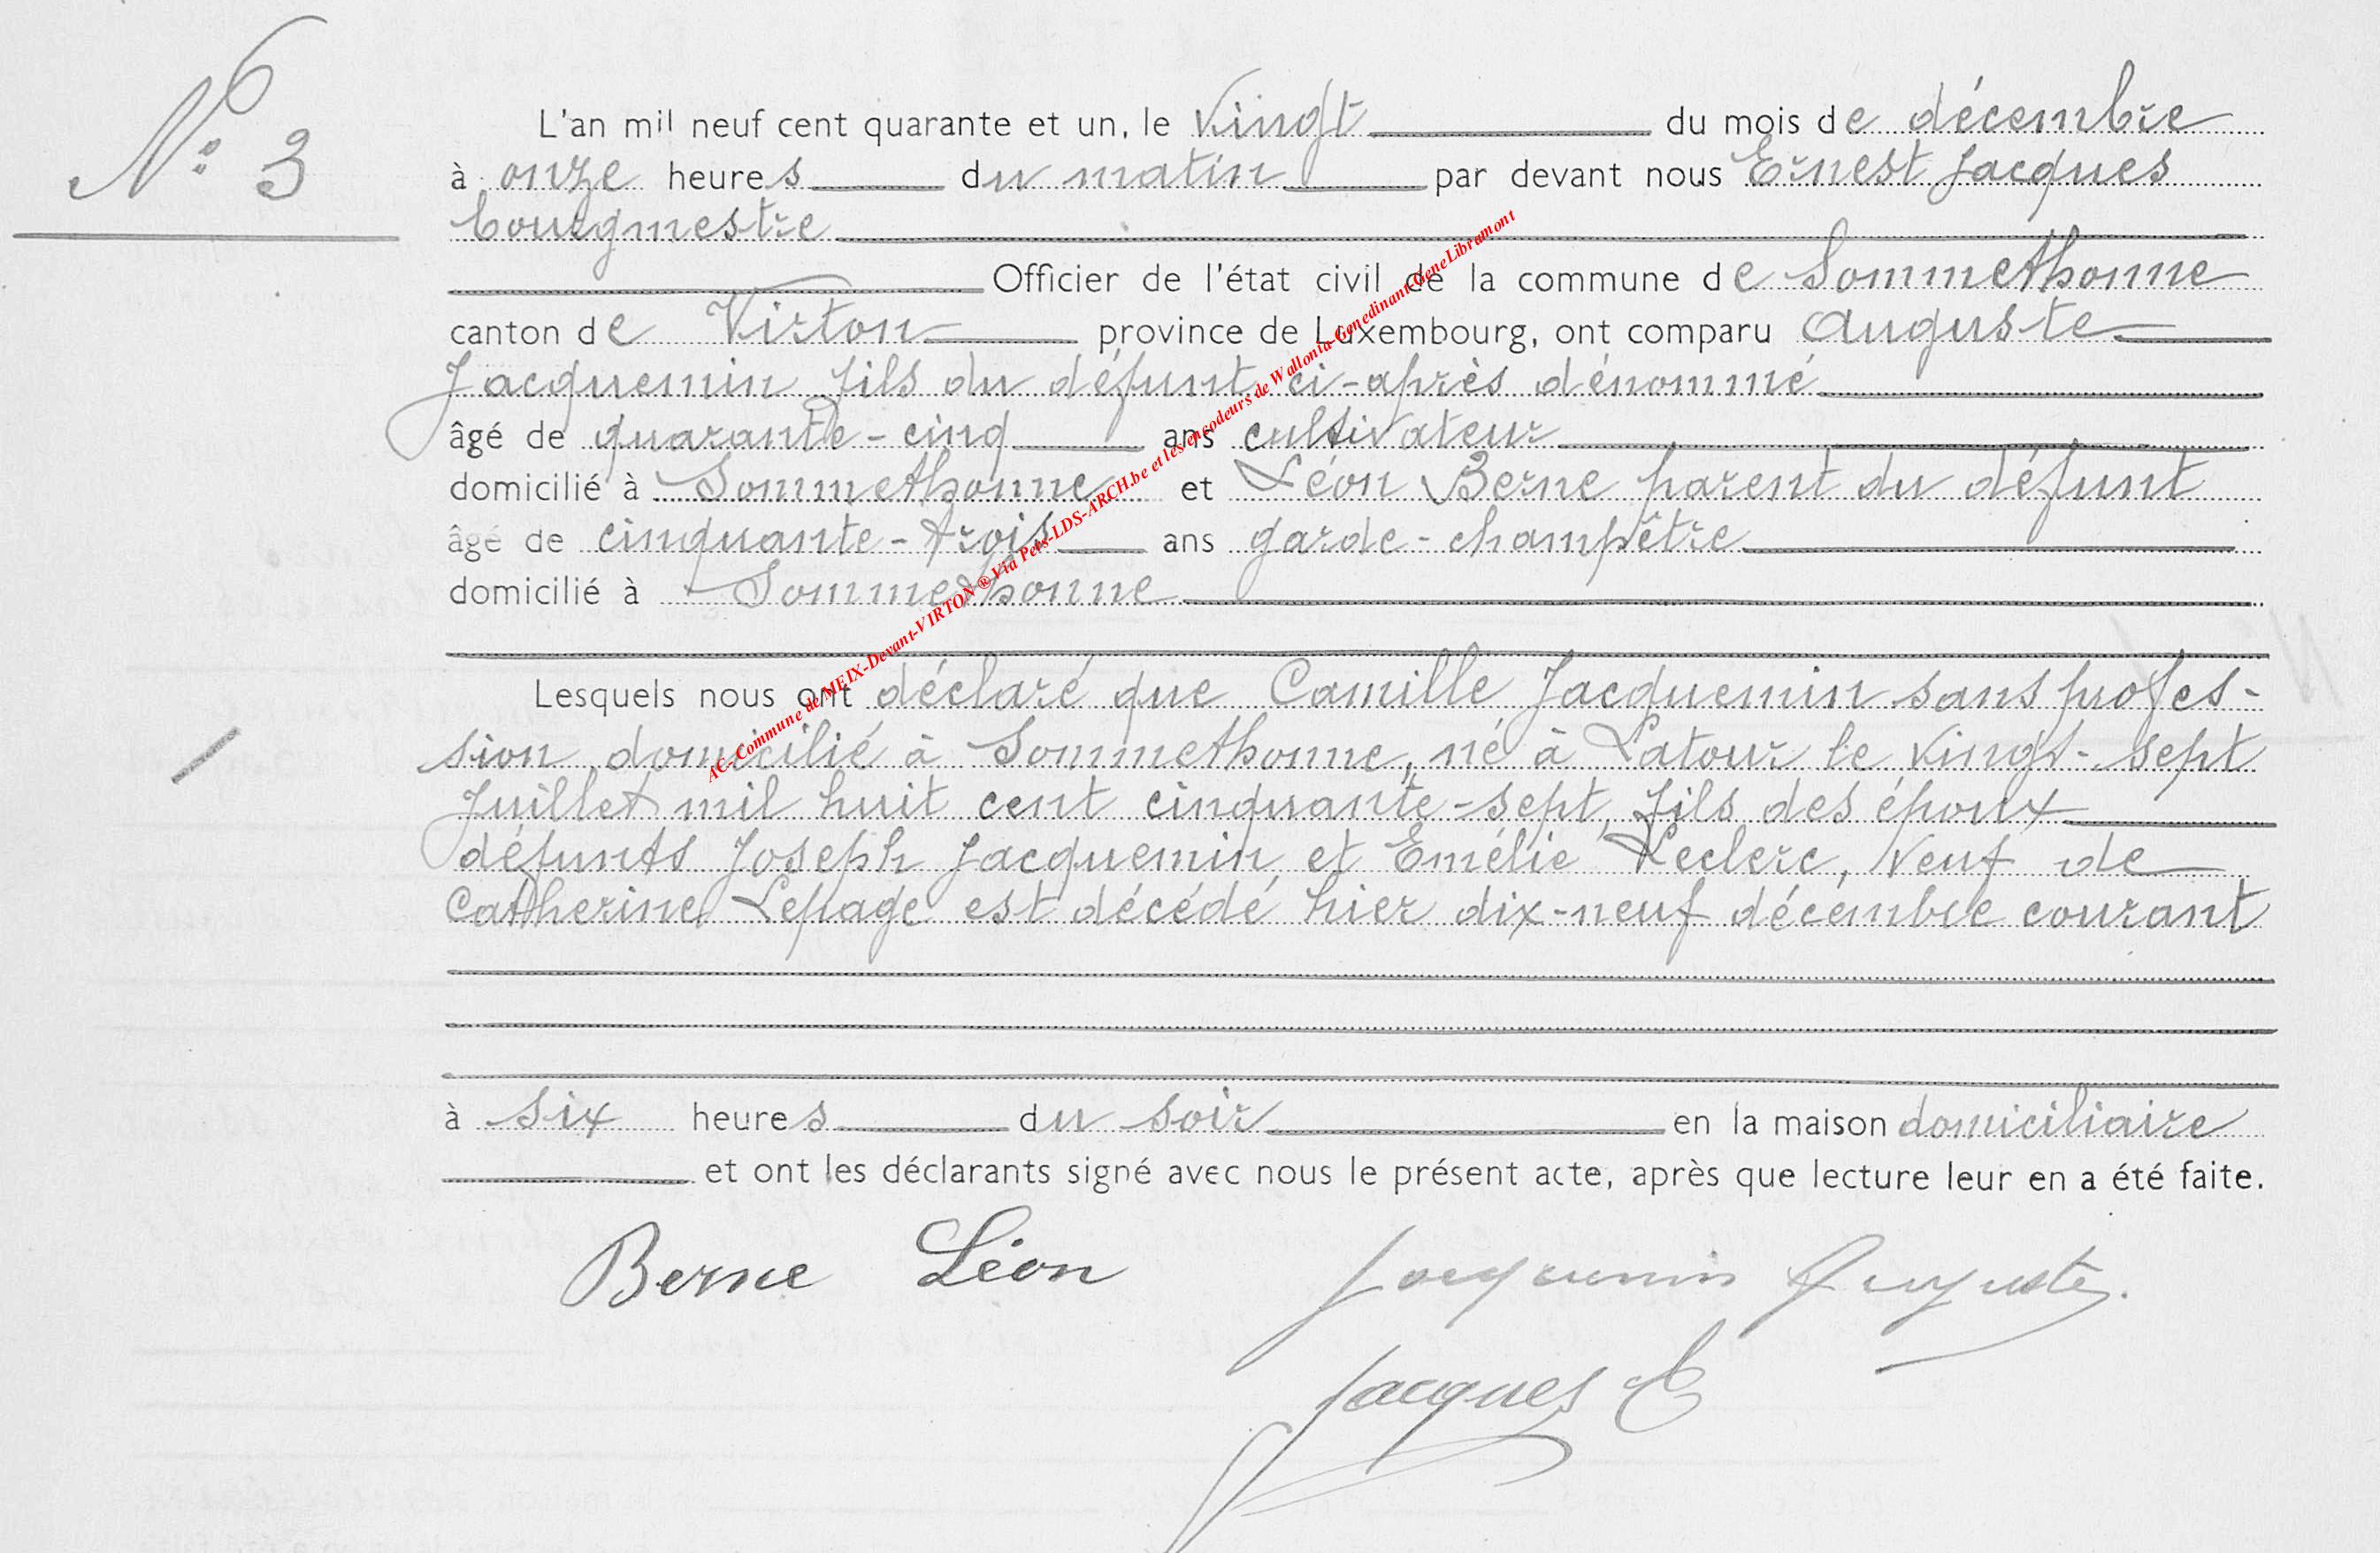 N° 3
L'an mil neuf cent quarante et un, le vingt du mois de décembre
à onze heures du matin par devant nous Ernest Jacques
bourgmestre
Officier de l'état civil de la commune de Sommethonne
canton de Virton province de Luxembourg, ont comparu Auguste
Jacquemin fils du défunt ci-après dénommé
âgé de quarante-cinq ans cultivateur
domicilié à Sommethonne et Léon Berne parent du défunt
âgé de cinquante-trois ans garde-champêtre
domicilié à Sommethonne
Lesquels nous ont déclaré que Camille Jacquemin sans profes-
sion domicilié à Sommethonne, né à Latour le vingt-sept
Juillet mil huit cent cinquante-sept, fils des époux
défunts Joseph Jacquemin et Emélie Leclerc, veuf de
Catherine Lepage est décédé hier dix-neuf décembre courant
à six heures du soir en la maison domiciliaire
et ont les déclarants signé avec nous le présent acte, après que lecture leur en a été faite.
Berne Léon Jacquemin Auguste.
Jacques E
AC-Commune de MEIX-Devant-VIRTON ® Via Pers-LDS-ARCH.be et les encodeurs de Wallonia-Genedinant-GeneLibramont